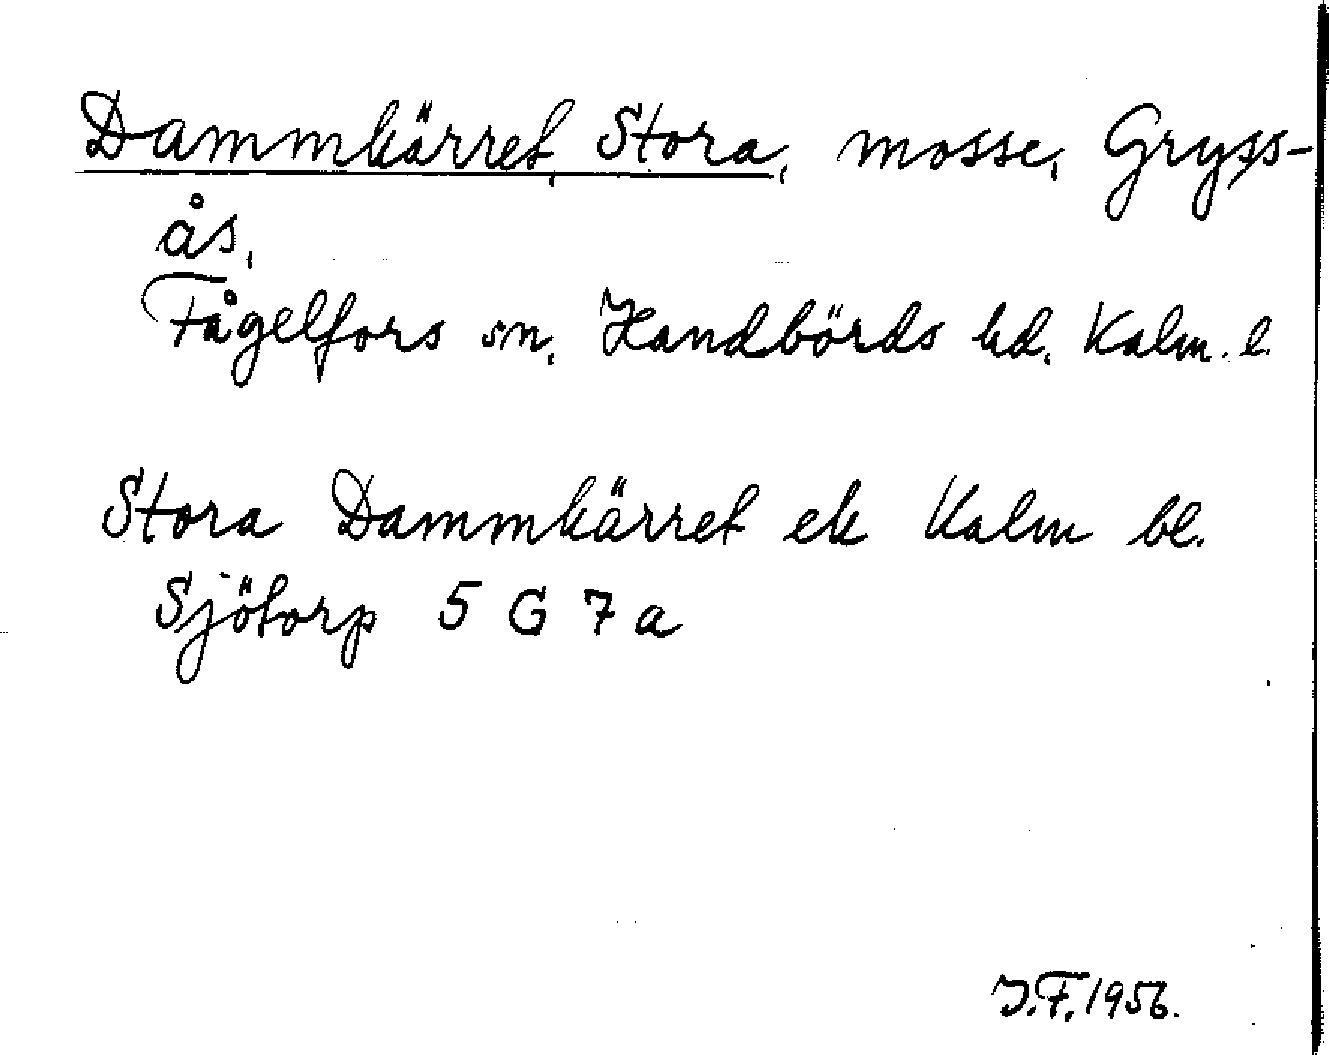 Dammkärret, Stora, mosse, Gryss-
ås,
Fågelfors sn, Handbörds hd, Kalm. l.
Stora Dammkärret ek Kalm bl.
Sjötorp 5 G 7 a
J.F. 1956.